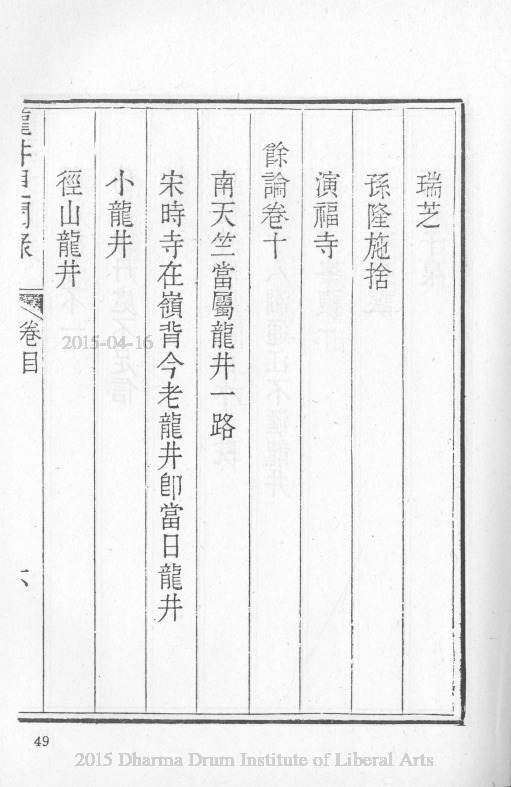 瑞芝
孫隆施捨
演福寺
餘論卷十
南天竺當屬龍井一路
宋時寺在嶺背今老龍井卽當日龍井
小龍井
徑山龍井
龍井見聞錄 卷目 六
49
2015-04-16
2015 Dharma Drum Institute of Liberal Arts